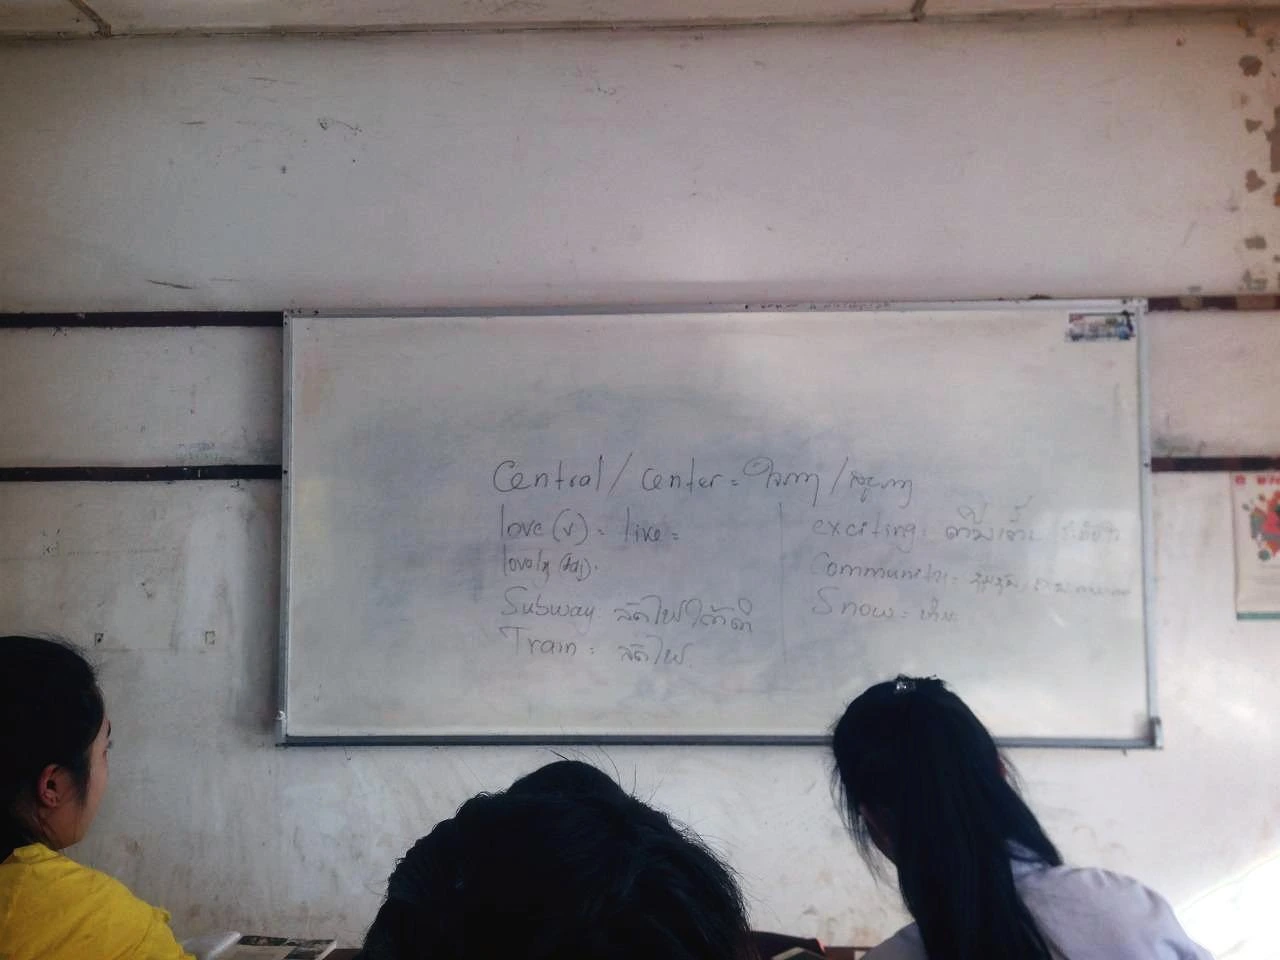 Central / center = ใจกาງ / ສູນກາງ
love (v) = like =
lovely (adj).
Subway: ລົດໄຟໃຕ້ດິນ
Train = ລົດໄຟ.
exciting = ຕື່ນເຕັ້ນ
Community = ຊຸມຊົນ
Snow = ຫິມະ